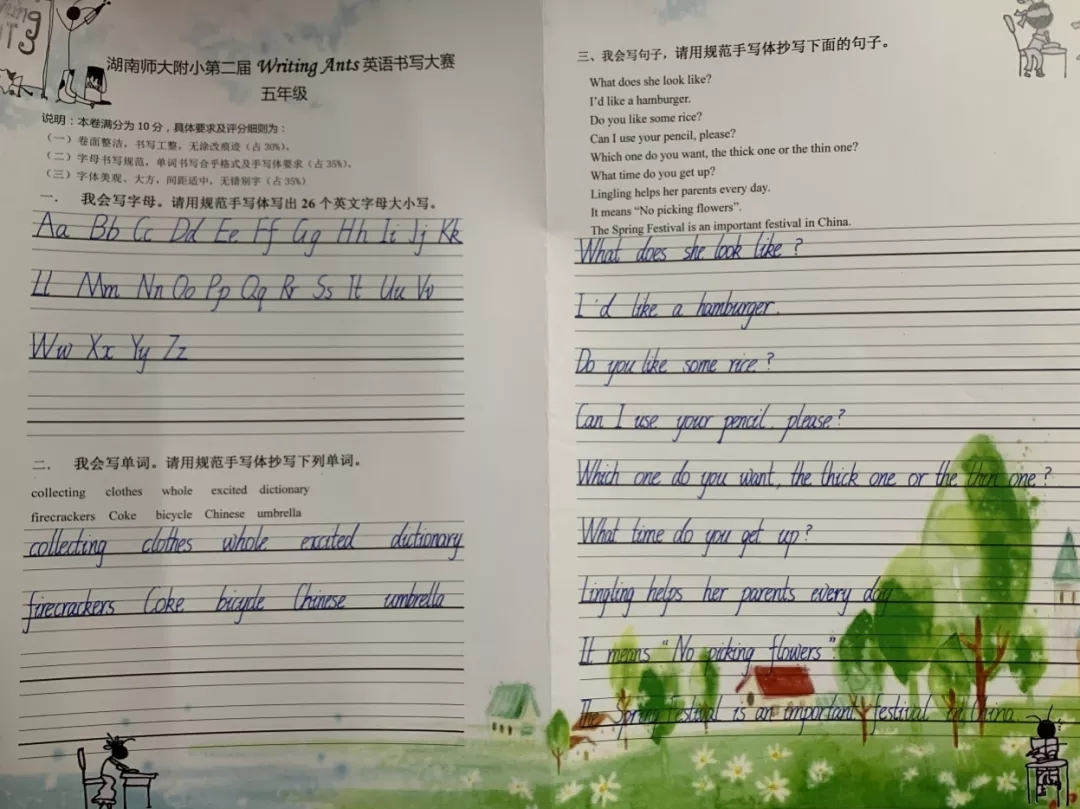 湖南师大附小第二届 Writing Ants 英语书写大赛
五年级
说明：本卷满分为 10 分，具体要求及评分细则为：
（一）卷面整洁，书写工整，无涂改痕迹（占 30%）。
（二）字母书写规范，单词书写合乎格式及手写体要求（占 35%）。
（三）字体美观、大方，间距适中，无错别字（占 35%）
一． 我会写字母。请用规范手写体写出 26 个英文字母大小写。
Aa Bb Cc Dd Ee Ff Gg Hh Ii Jj Kk
Ll Mm Nn Oo Pp Qq Rr Ss Tt Uu Vv
Ww Xx Yy Zz
二． 我会写单词。请用规范手写体抄写下列单词。
collecting clothes whole excited dictionary
firecrackers Coke bicycle Chinese umbrella
collecting clothes whole excited dictionary
firecrackers Coke bicycle Chinese umbrella
三、我会写句子，请用规范手写体抄写下面的句子。
What does she look like?
I'd like a hamburger.
Do you like some rice?
Can I use your pencil, please?
Which one do you want, the thick one or the thin one?
What time do you get up?
Lingling helps her parents every day.
It means “No picking flowers”.
The Spring Festival is an important festival in China.
What does she look like?
I'd like a hamburger.
Do you like some rice?
Can I use your pencil, please?
Which one do you want, the thick one or the thin one?
What time do you get up?
Lingling helps her parents every day
It means “No picking flowers”
The Spring Festival is an important festival in China.